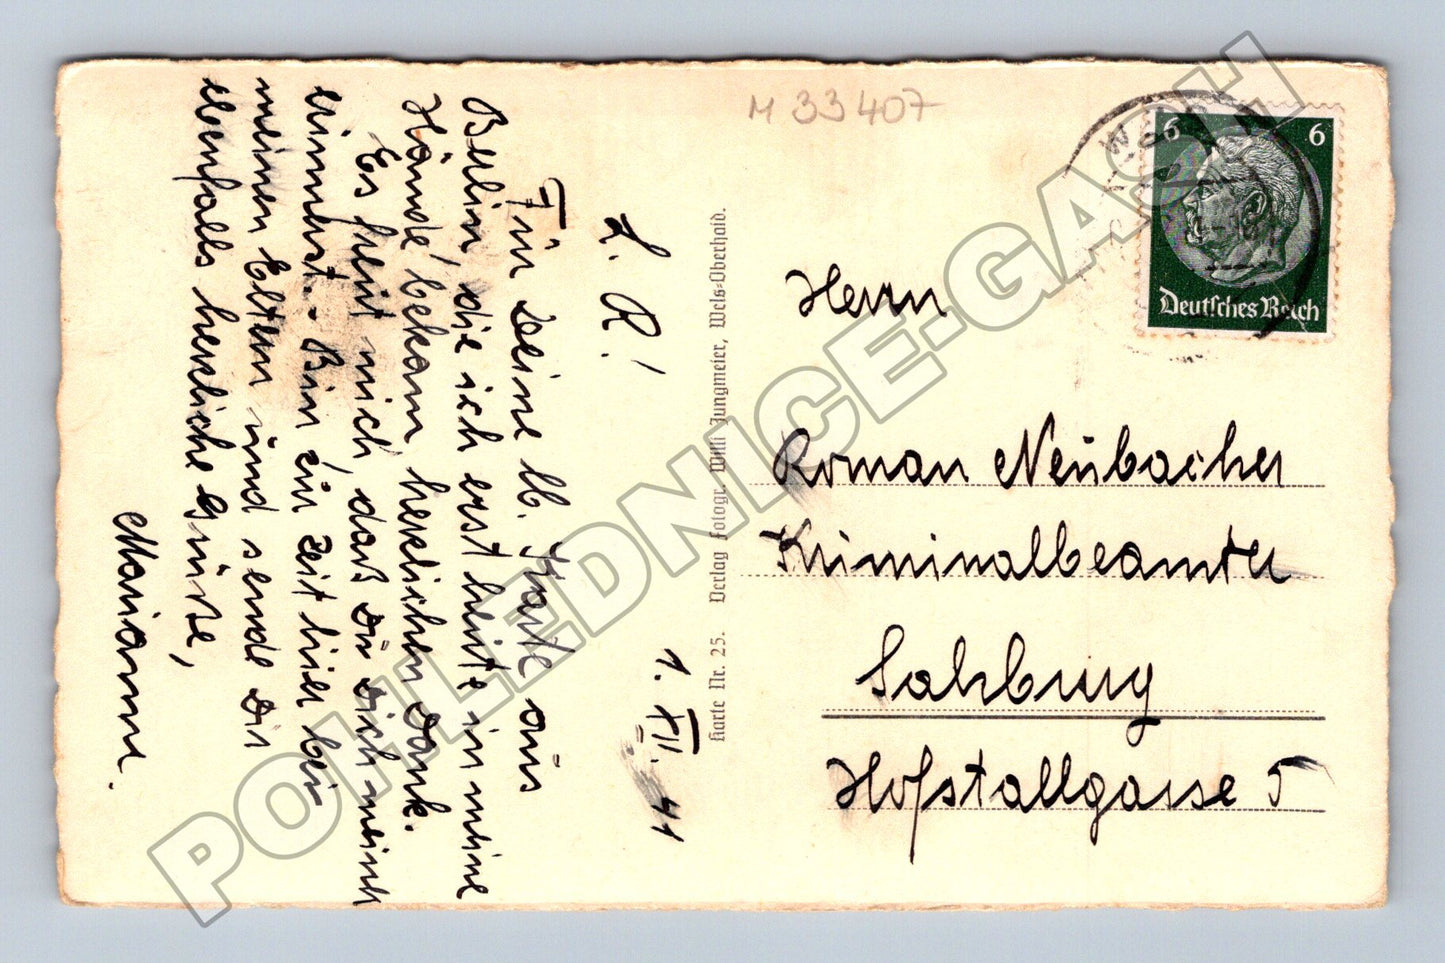 M 33407
L. R!
1. XII. 41
Für Deine lb. Karte aus
Berlin, die ich erst heute in meine
Hände bekam herzlichen Dank.
Es freut mich, daß Du dich meiner
erinnerst. - Bin zur Zeit hier bei
meinen Eltern und sende Dir
ebenfalls herzliche Grüße,
Marianne.
Karte Nr. 25. Verlag Fotogr. Willi Jungmeier, Wels-Oberhaid.
6 6
Deutsches Reich
Herrn
Roman Neubacher
Kriminalbeamter
Salzburg
Hofstallgasse 5
POHLEDNICE-GASH